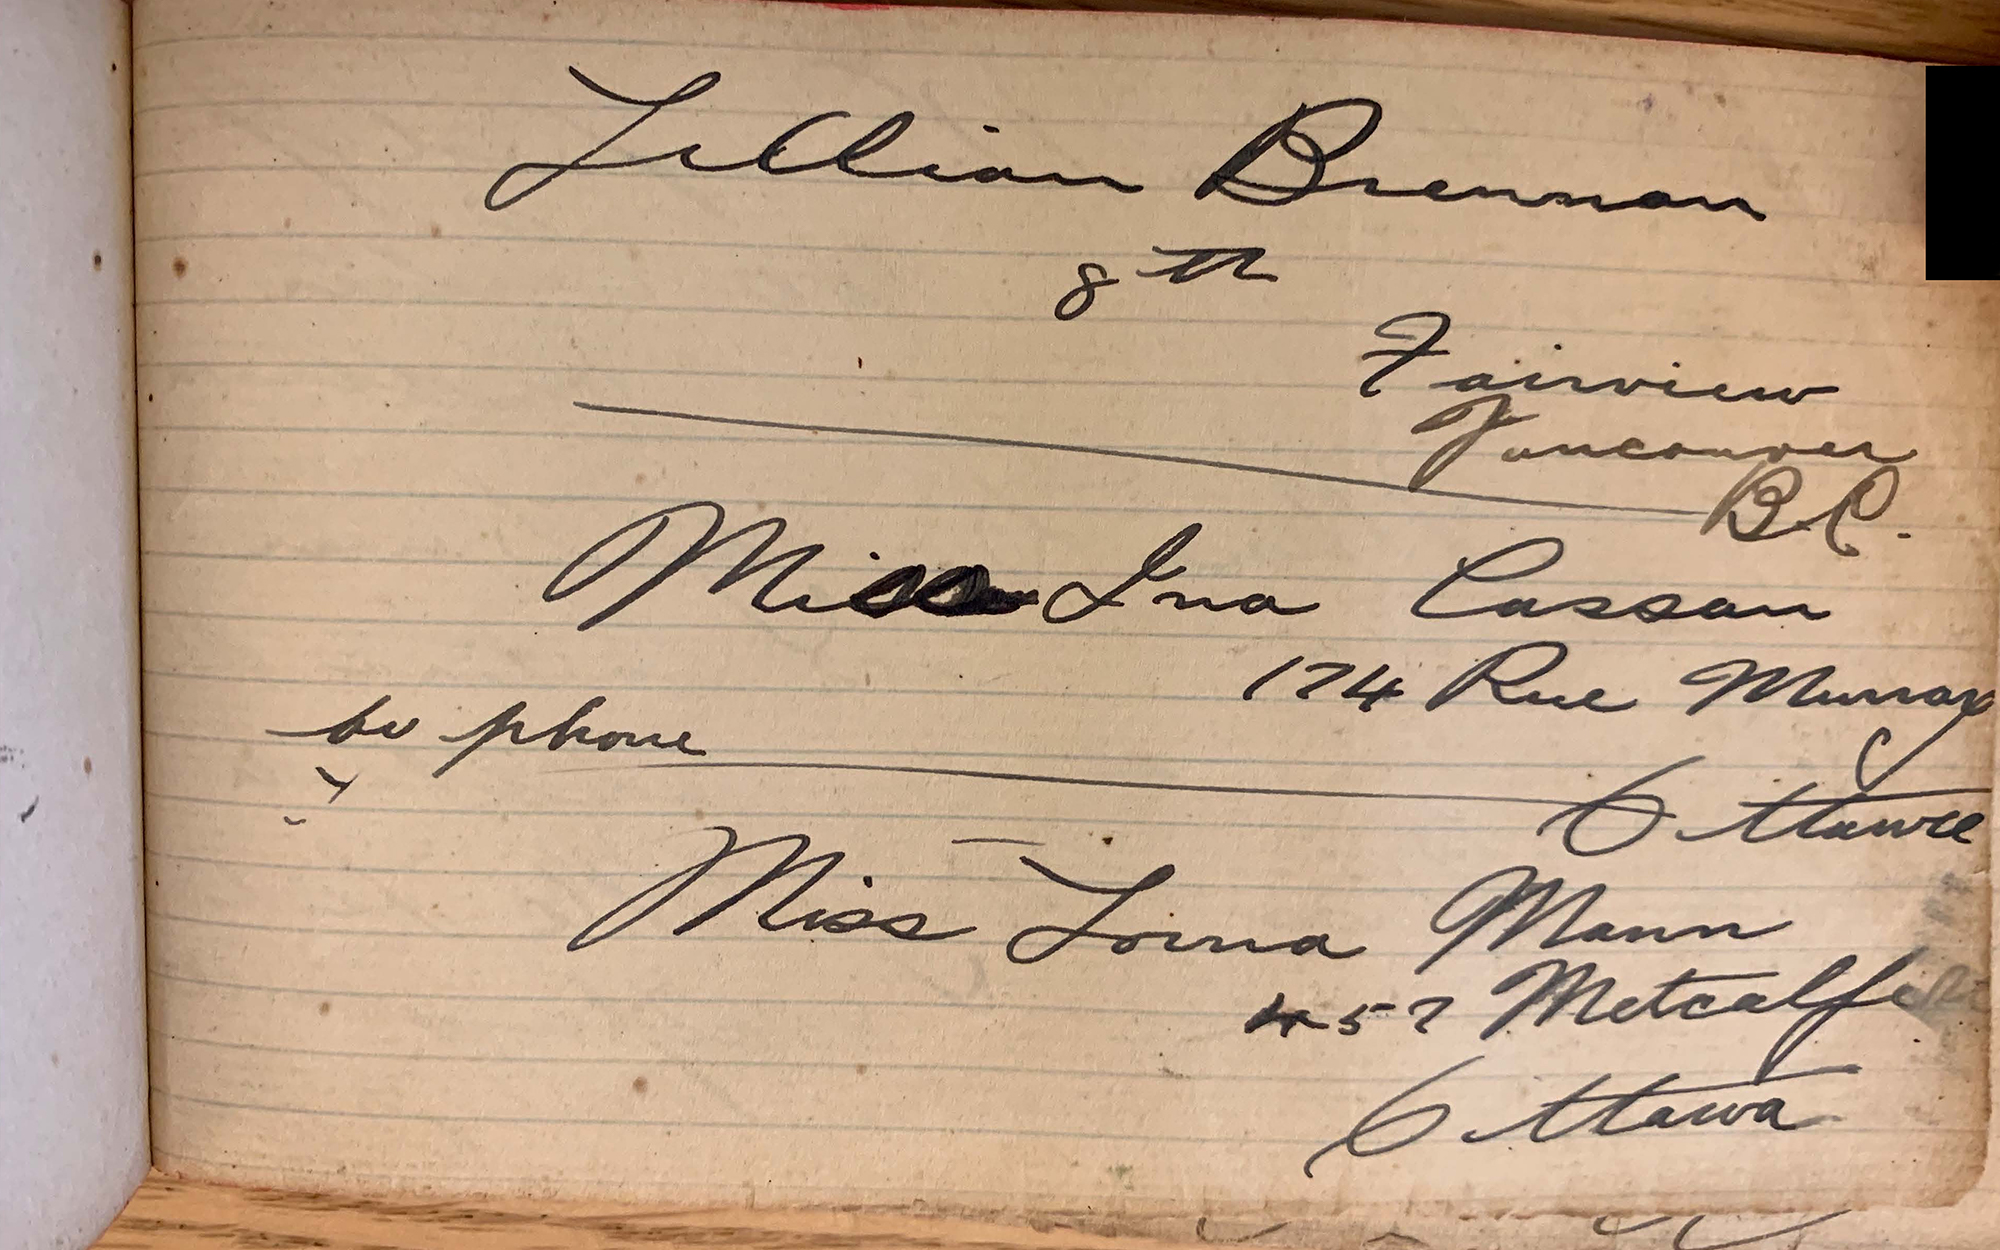 Lillian Brennan
8th
Fairview
Vancouver
B.C.
Miss Ina Cassan
174 Rue Murray
to phone
Ottawa
Miss Lorna Mann
457 Metcalfe
Ottawa